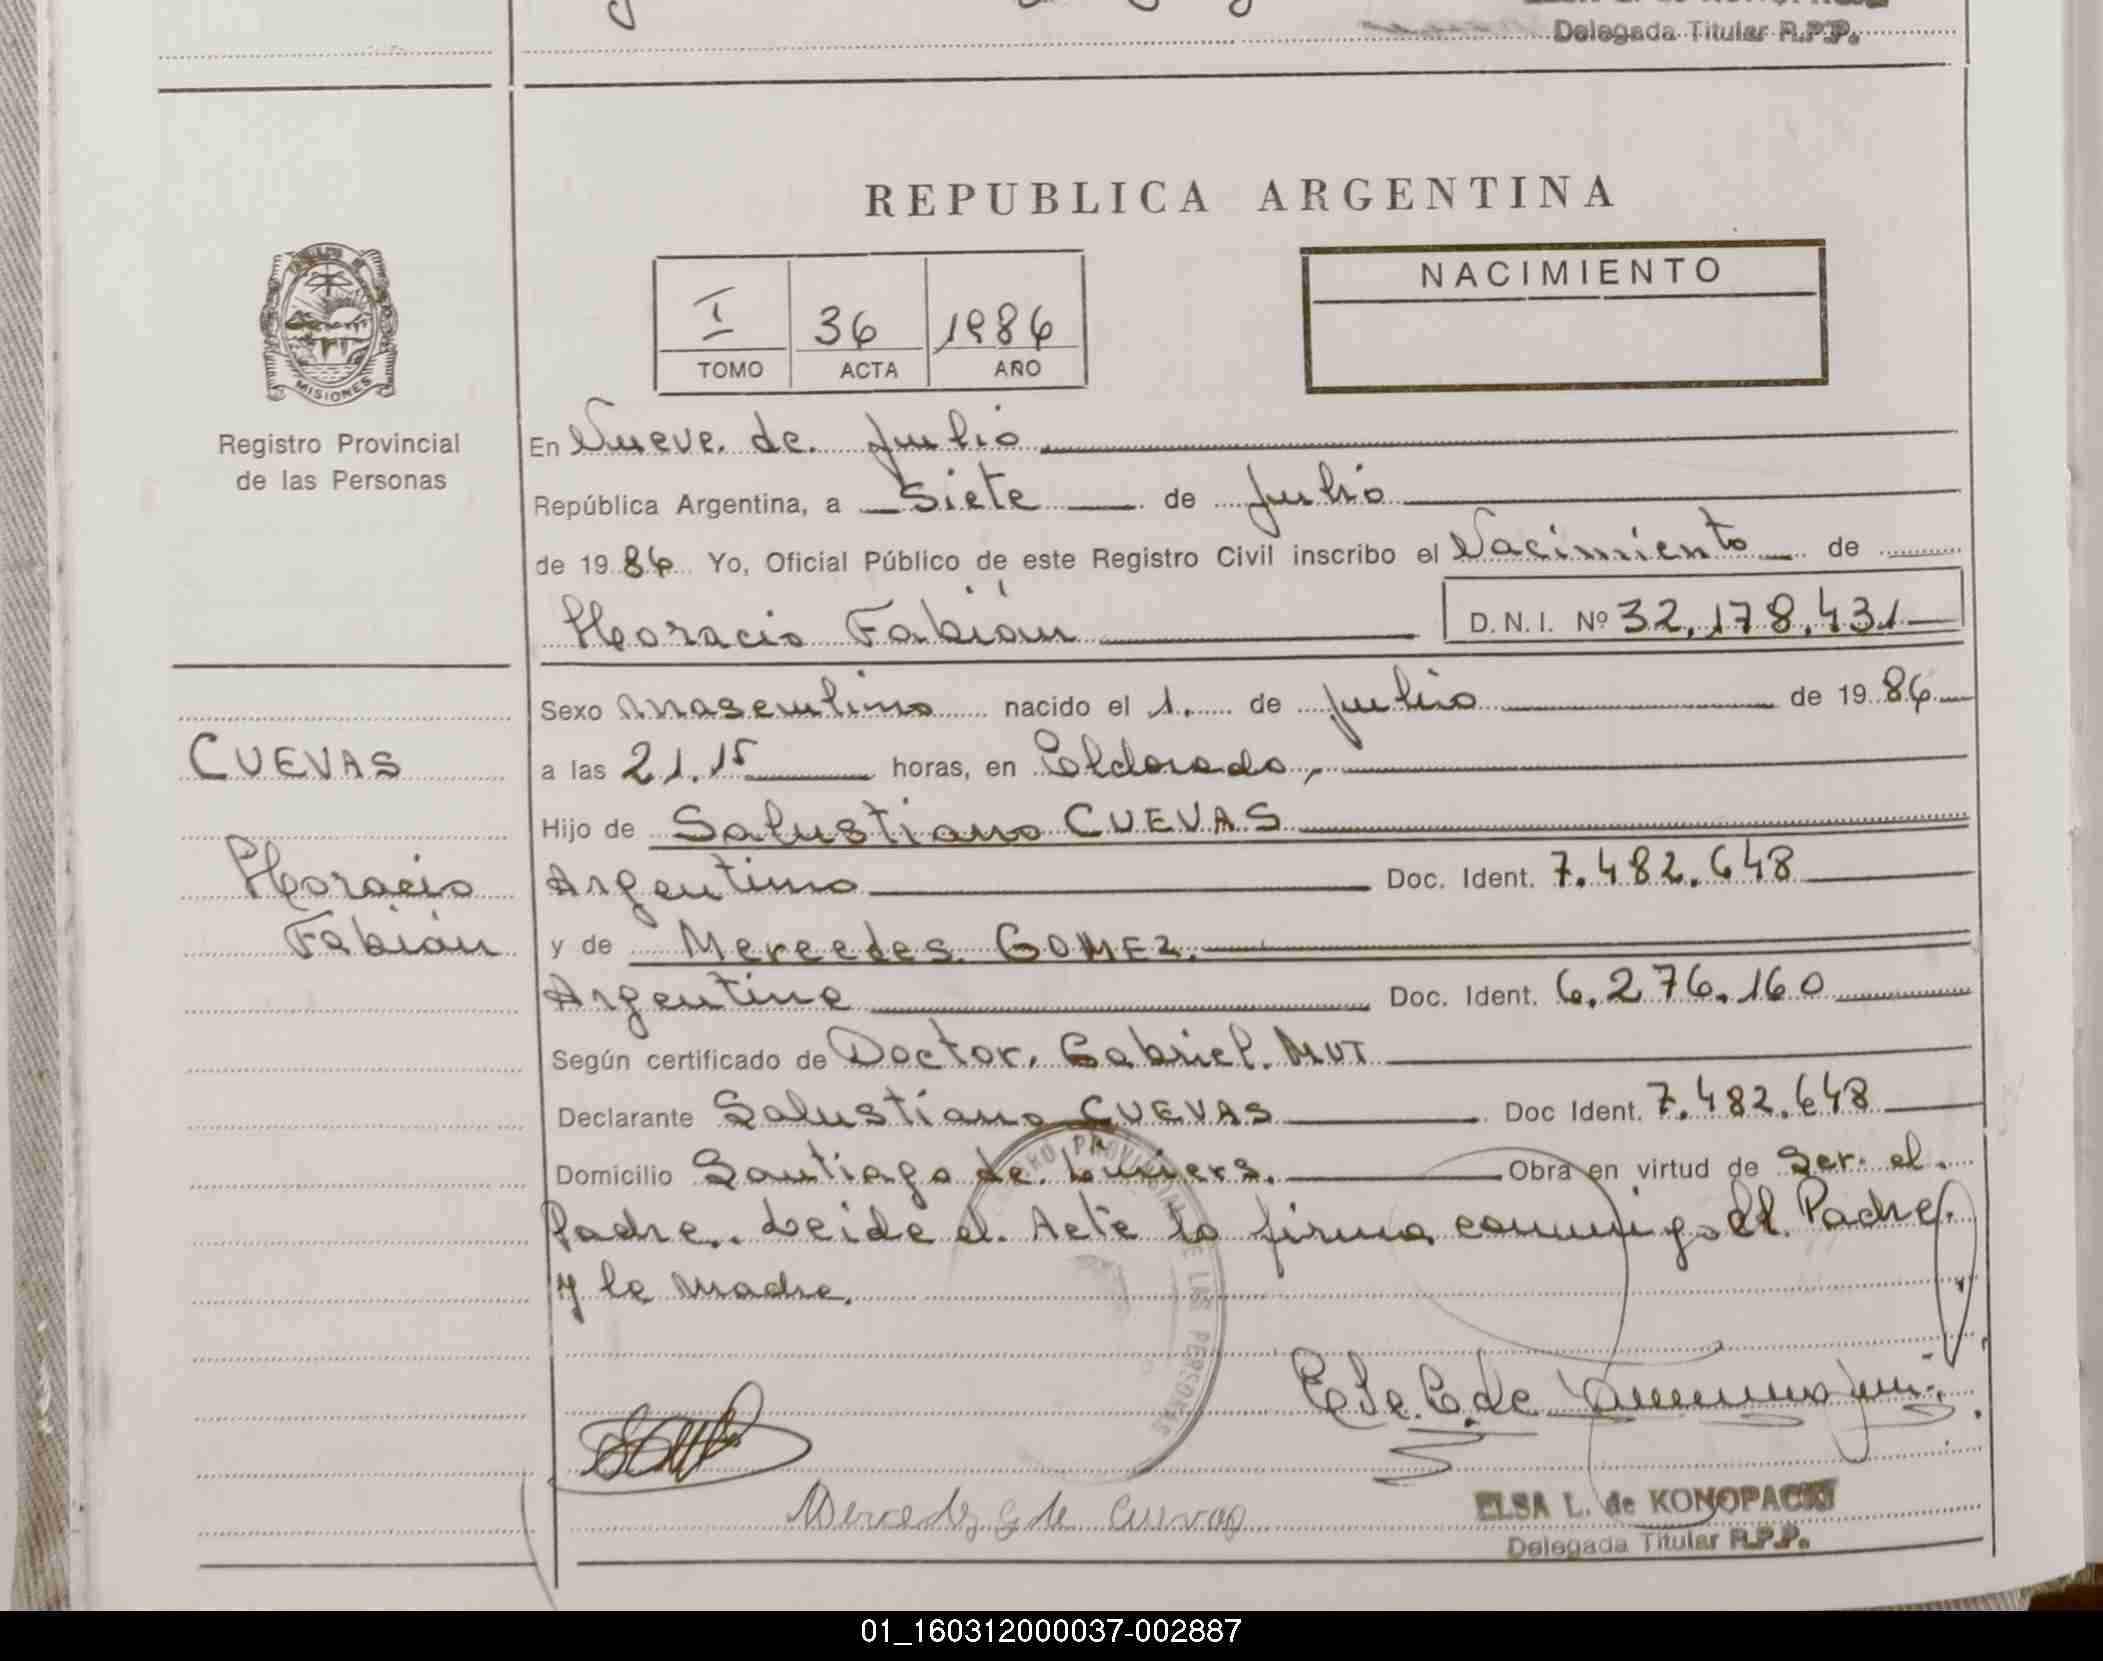 Delegada Titular R.P.P.
REPUBLICA ARGENTINA
MISIONES
Registro Provincial
de las Personas
I 36 1986
TOMO ACTA AÑO
NACIMIENTO
En Nueve de Julio
República Argentina, a Siete de Julio
de 19 86 Yo, Oficial Público de este Registro Civil inscribo el Nacimiento de
Horacio Fabián D.N.I. Nº 32.178.431
Sexo masculino nacido el 1. de Julio de 19 86
CUEVAS
Horacio
Fabián
a las 21.15 horas, en Eldorado,
Hijo de Salustiano CUEVAS
Argentino Doc. Ident. 7.482.648
y de Mercedes GOMEZ.
Argentina Doc. Ident. 6.276.160
Según certificado de Doctor. Gabriel. MUT
Declarante Salustiano CUEVAS Doc Ident. 7.482.648
Domicilio Santiago de Liniers. Obra en virtud de Ser el
Padre.. Leida el Acta la firma conmigo el Padre
y la madre.
Mercedes G de Cuevas
ELSA L. de KONOPACKI
Delegada Titular R.P.P.
01_160312000037-002887